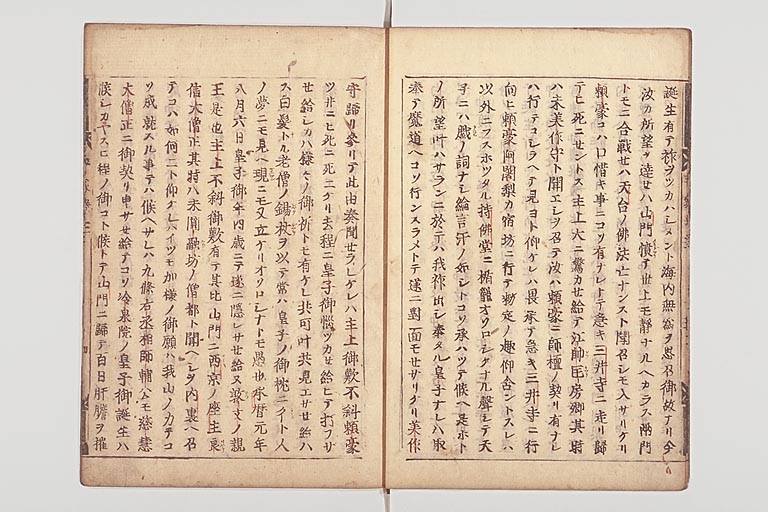 誕生有テ祚ヲツカハシメント海内無為ヲ思召御故ナリ今
汝カ所望ヲ達セハ山門憤テ世上モ静ナルヘカラス両門
トモニ合戦セハ天台ノ佛法亡ナンスト聞召シモ入サリケリ
頼豪コハ口惜キ事ニコソ有ナレトテ急キ三井寺ニ走リ歸
テヒ死ニセントス主上大ニ驚カセ給テ江帥匡房卿其時
ハ未美作守ト聞エシヲ召テ汝ハ頼豪ニ師檀ノ契リ有ナレ
ハ行テコシラヘテ見ヨト仰ケレハ畏承テ急キ三井寺ニ行
向ヒ頼豪阿闍梨カ宿坊ニ行テ勅定ノ趣仰含ントスレハ
以外ニフスホツタル持佛堂ニ楯籠オソロシケナル聲シテ天
子ニハ戯ノ詞ナシ綸言汗ノ如シトコソ承ハツテ候ヘ是ホト
ノ所望叶ハサランニ於テハ我祈出シ奉タル皇子ナレハ取
奉テ魔道ヘコソ行ンスラメトテ遂ニ對面モセサリケリ美作
守歸リ参リテ此由奏聞セラレケレハ主上御歎不斜頼豪
ツ井ニヒ死ニ死ニケリ去程ニ皇子御悩ツカセ給ヒテ打フサ
セ給シカハ様々ノ御祈トモ有ケレ共可叶共見エサセ給ハ
ス白髪ナル老僧ノ錫杖ヲ以テ常ハ皇子ノ御枕ニイト人
ノ夢ニモ見ヘ現ニモ又立ケリオソロシナトモ愚也承暦元年
八月六日皇子御年四歳ニテ遂ニ隠レサセ給ヌ敦文ノ親
王是也主上不斜御歎有テ其比山門ニ西京ノ座主良
信大僧正其時ハ未圓融坊ノ僧都ト聞ヘシヲ内裏ヘ召
テコハ如何ニト仰ケレハイツモ加様ノ御願ハ我山ノ力テコ
ソ成就スル事テハ候ヘサレハ九條右丞相師輔公モ慈恵
大僧正ニ御契リ申サセ給テコソ冷泉院ノ皇子御誕生ハ
候シカヤスキ程ノ御コト候トテ山門ニ歸テ百日肝膽ヲ摧